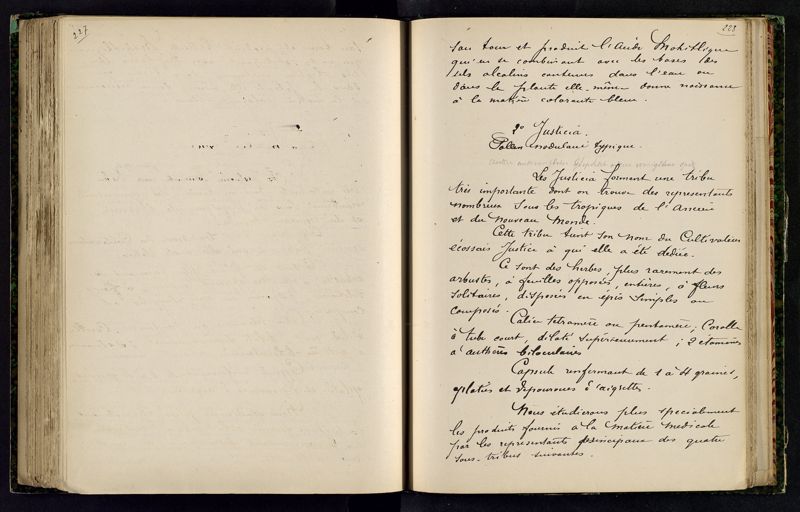 227
228
son tour et produit l'acide Mokitlique
qui en se combinant avec les bases des
sels alcalins contenus dans l'eau ou
dans la plante elle-même donne naissance
à la matière colorante bleue.
2º Justicia.
Pollen nodulaire typique.
Les Justicia forment une tribu
très importante dont on trouve des représentants
nombreux sous les tropiques de l'Ancien
et du Nouveau Monde.
Cette tribu tient son nom du Cultivateur
écossais Justice à qui elle a été dédiée.
Ce sont des herbes, plus rarement des
arbustes, à feuilles opposées, entières, à fleurs
solitaires, disposées en épis simples ou
composés.
Calice tétramère ou pentamère; Corolle
à tube court, dilaté supérieurement; 2 étamines
à anthères biloculaires
Capsule renfermant de 1 à 4 graines,
aplaties et dépourvues d'aigrettes.
Nous étudierons plus spécialement
les produits fournis à la matière médicale
par les représentants principaux des quatre
sous-tribus suivantes.